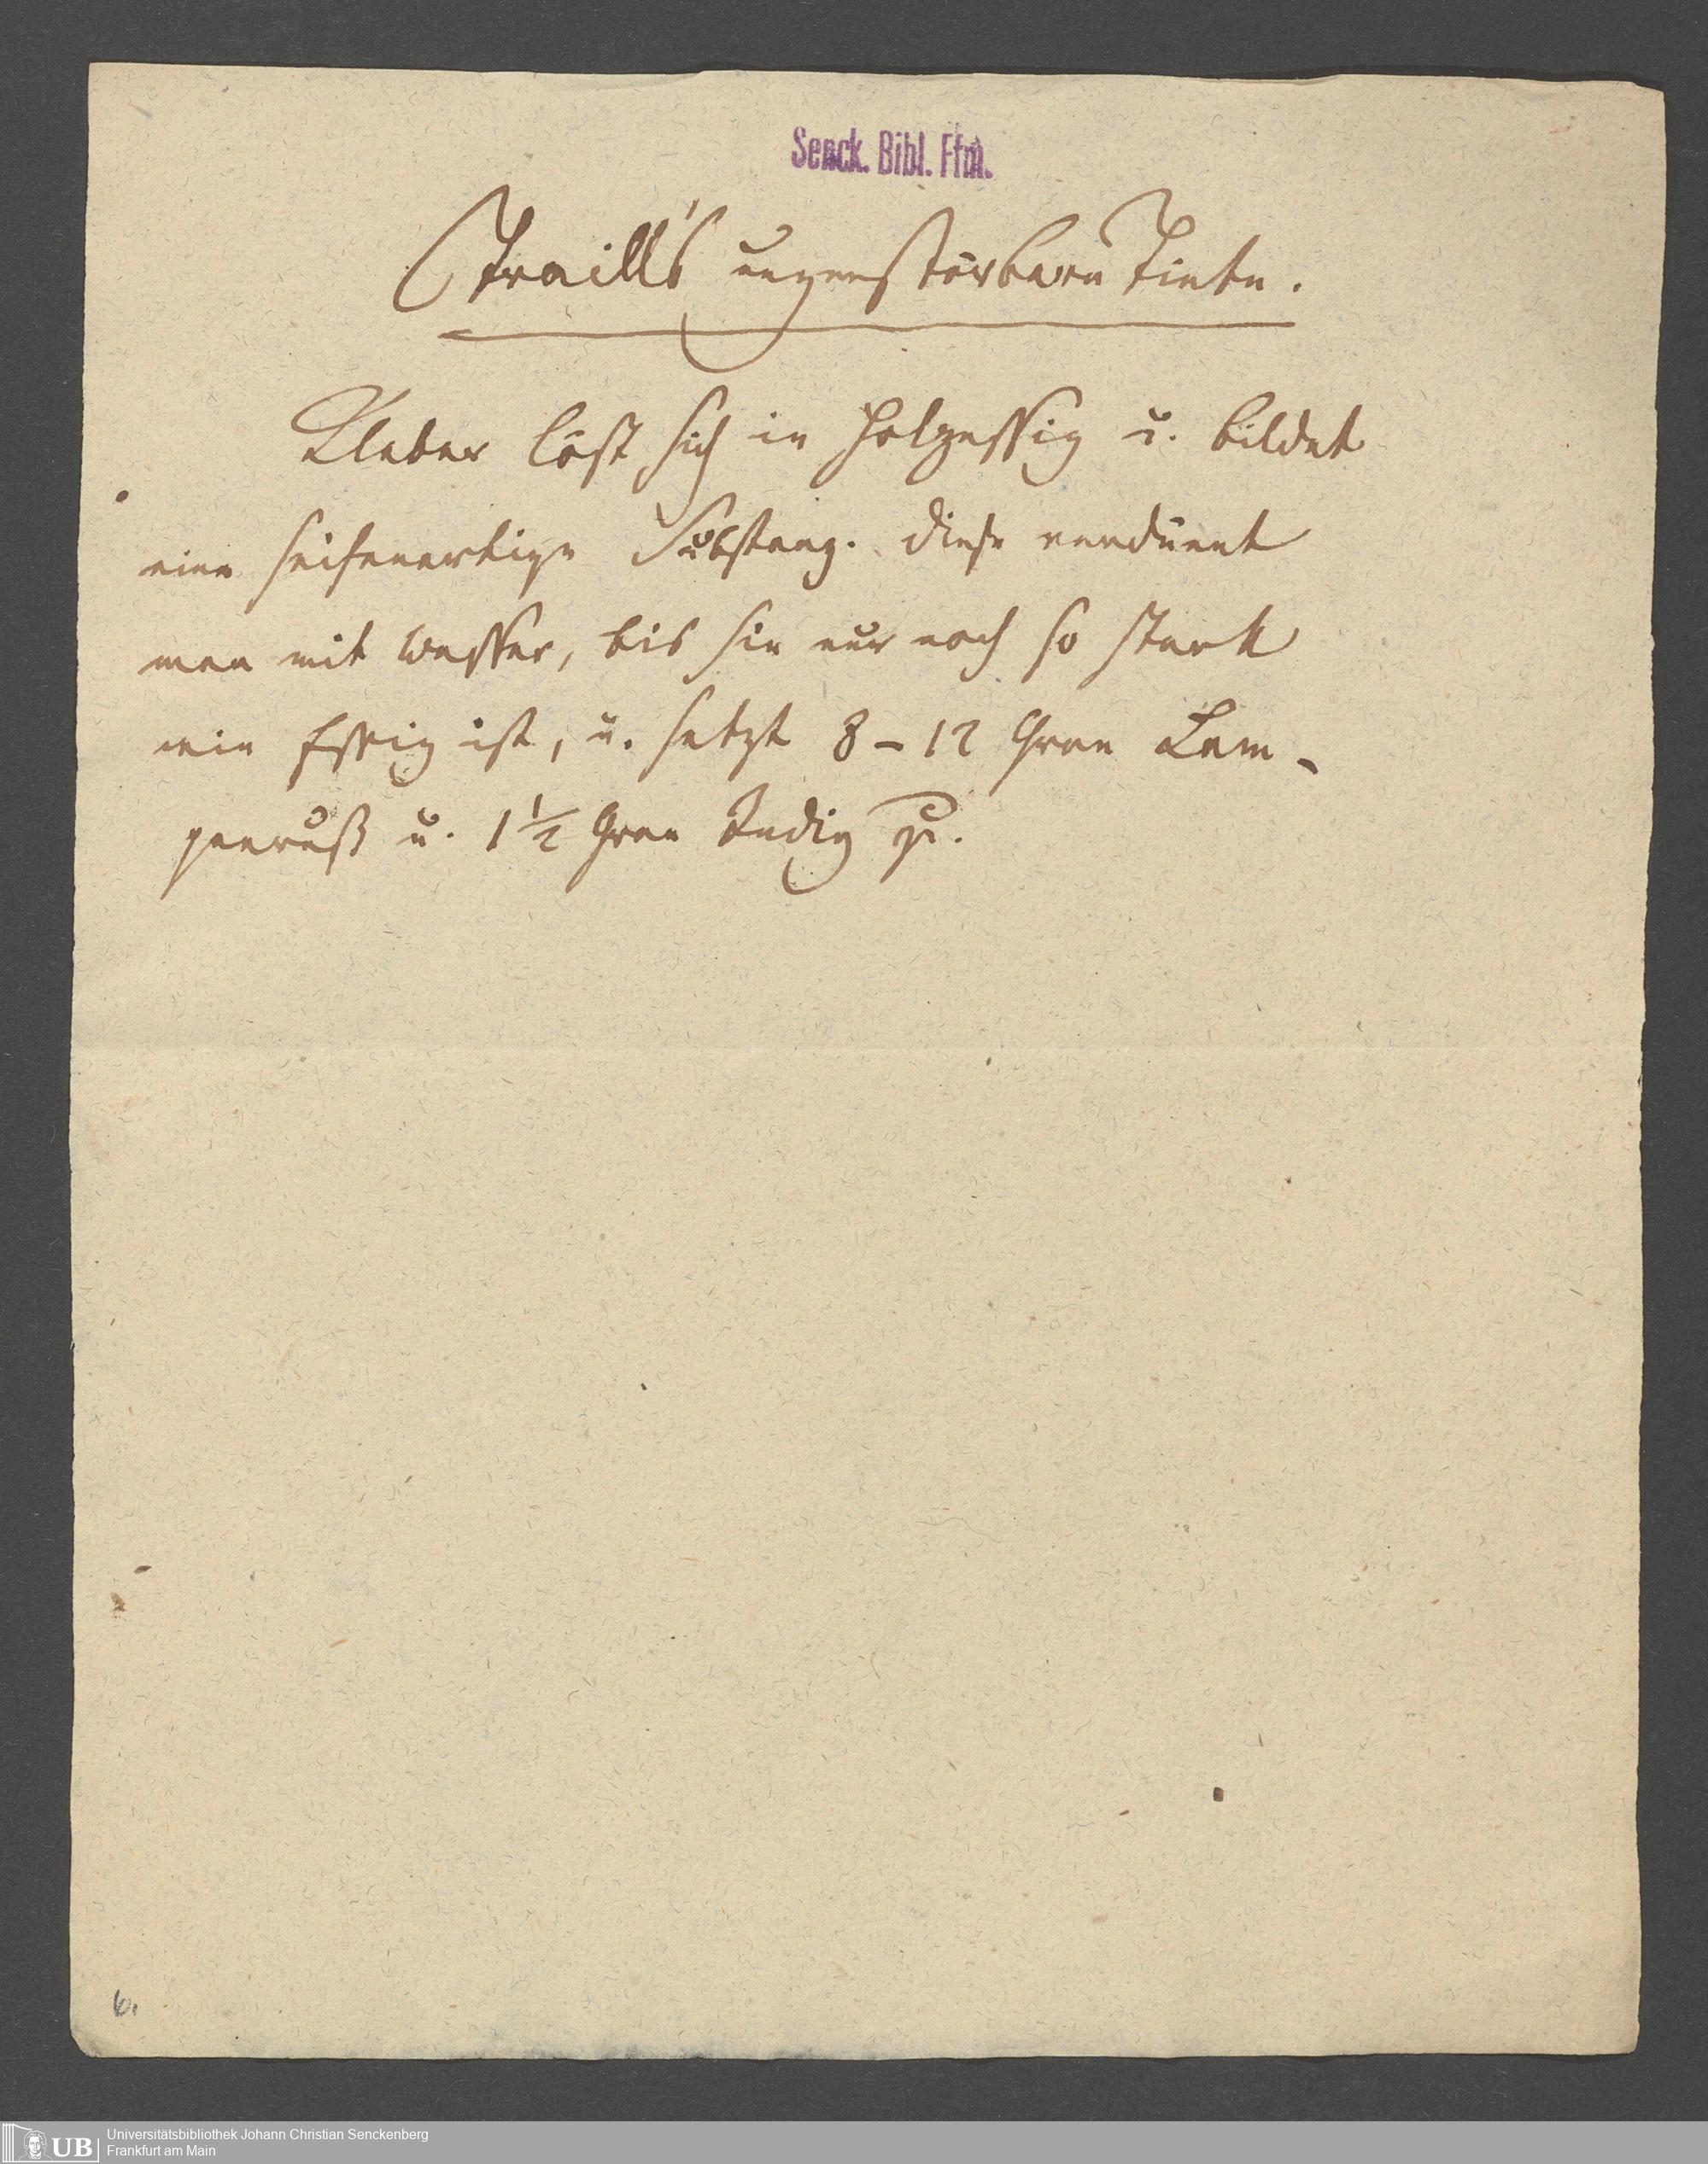 Senck. Bibl. Ffm.
Traill's unzerstörbare Tinte.
Kleber löst sich in Holzessig u. bildet
eine seifenartige Substanz. Diese verdünnt
man mit Wasser, bis sie nur noch so stark
wie Essig ist, u. setzt 8 – 12 Gran Lam-
penruß u. 1 1/2 Gran Indig zu.
6.
UB Universitätsbibliothek Johann Christian Senckenberg
Frankfurt am Main